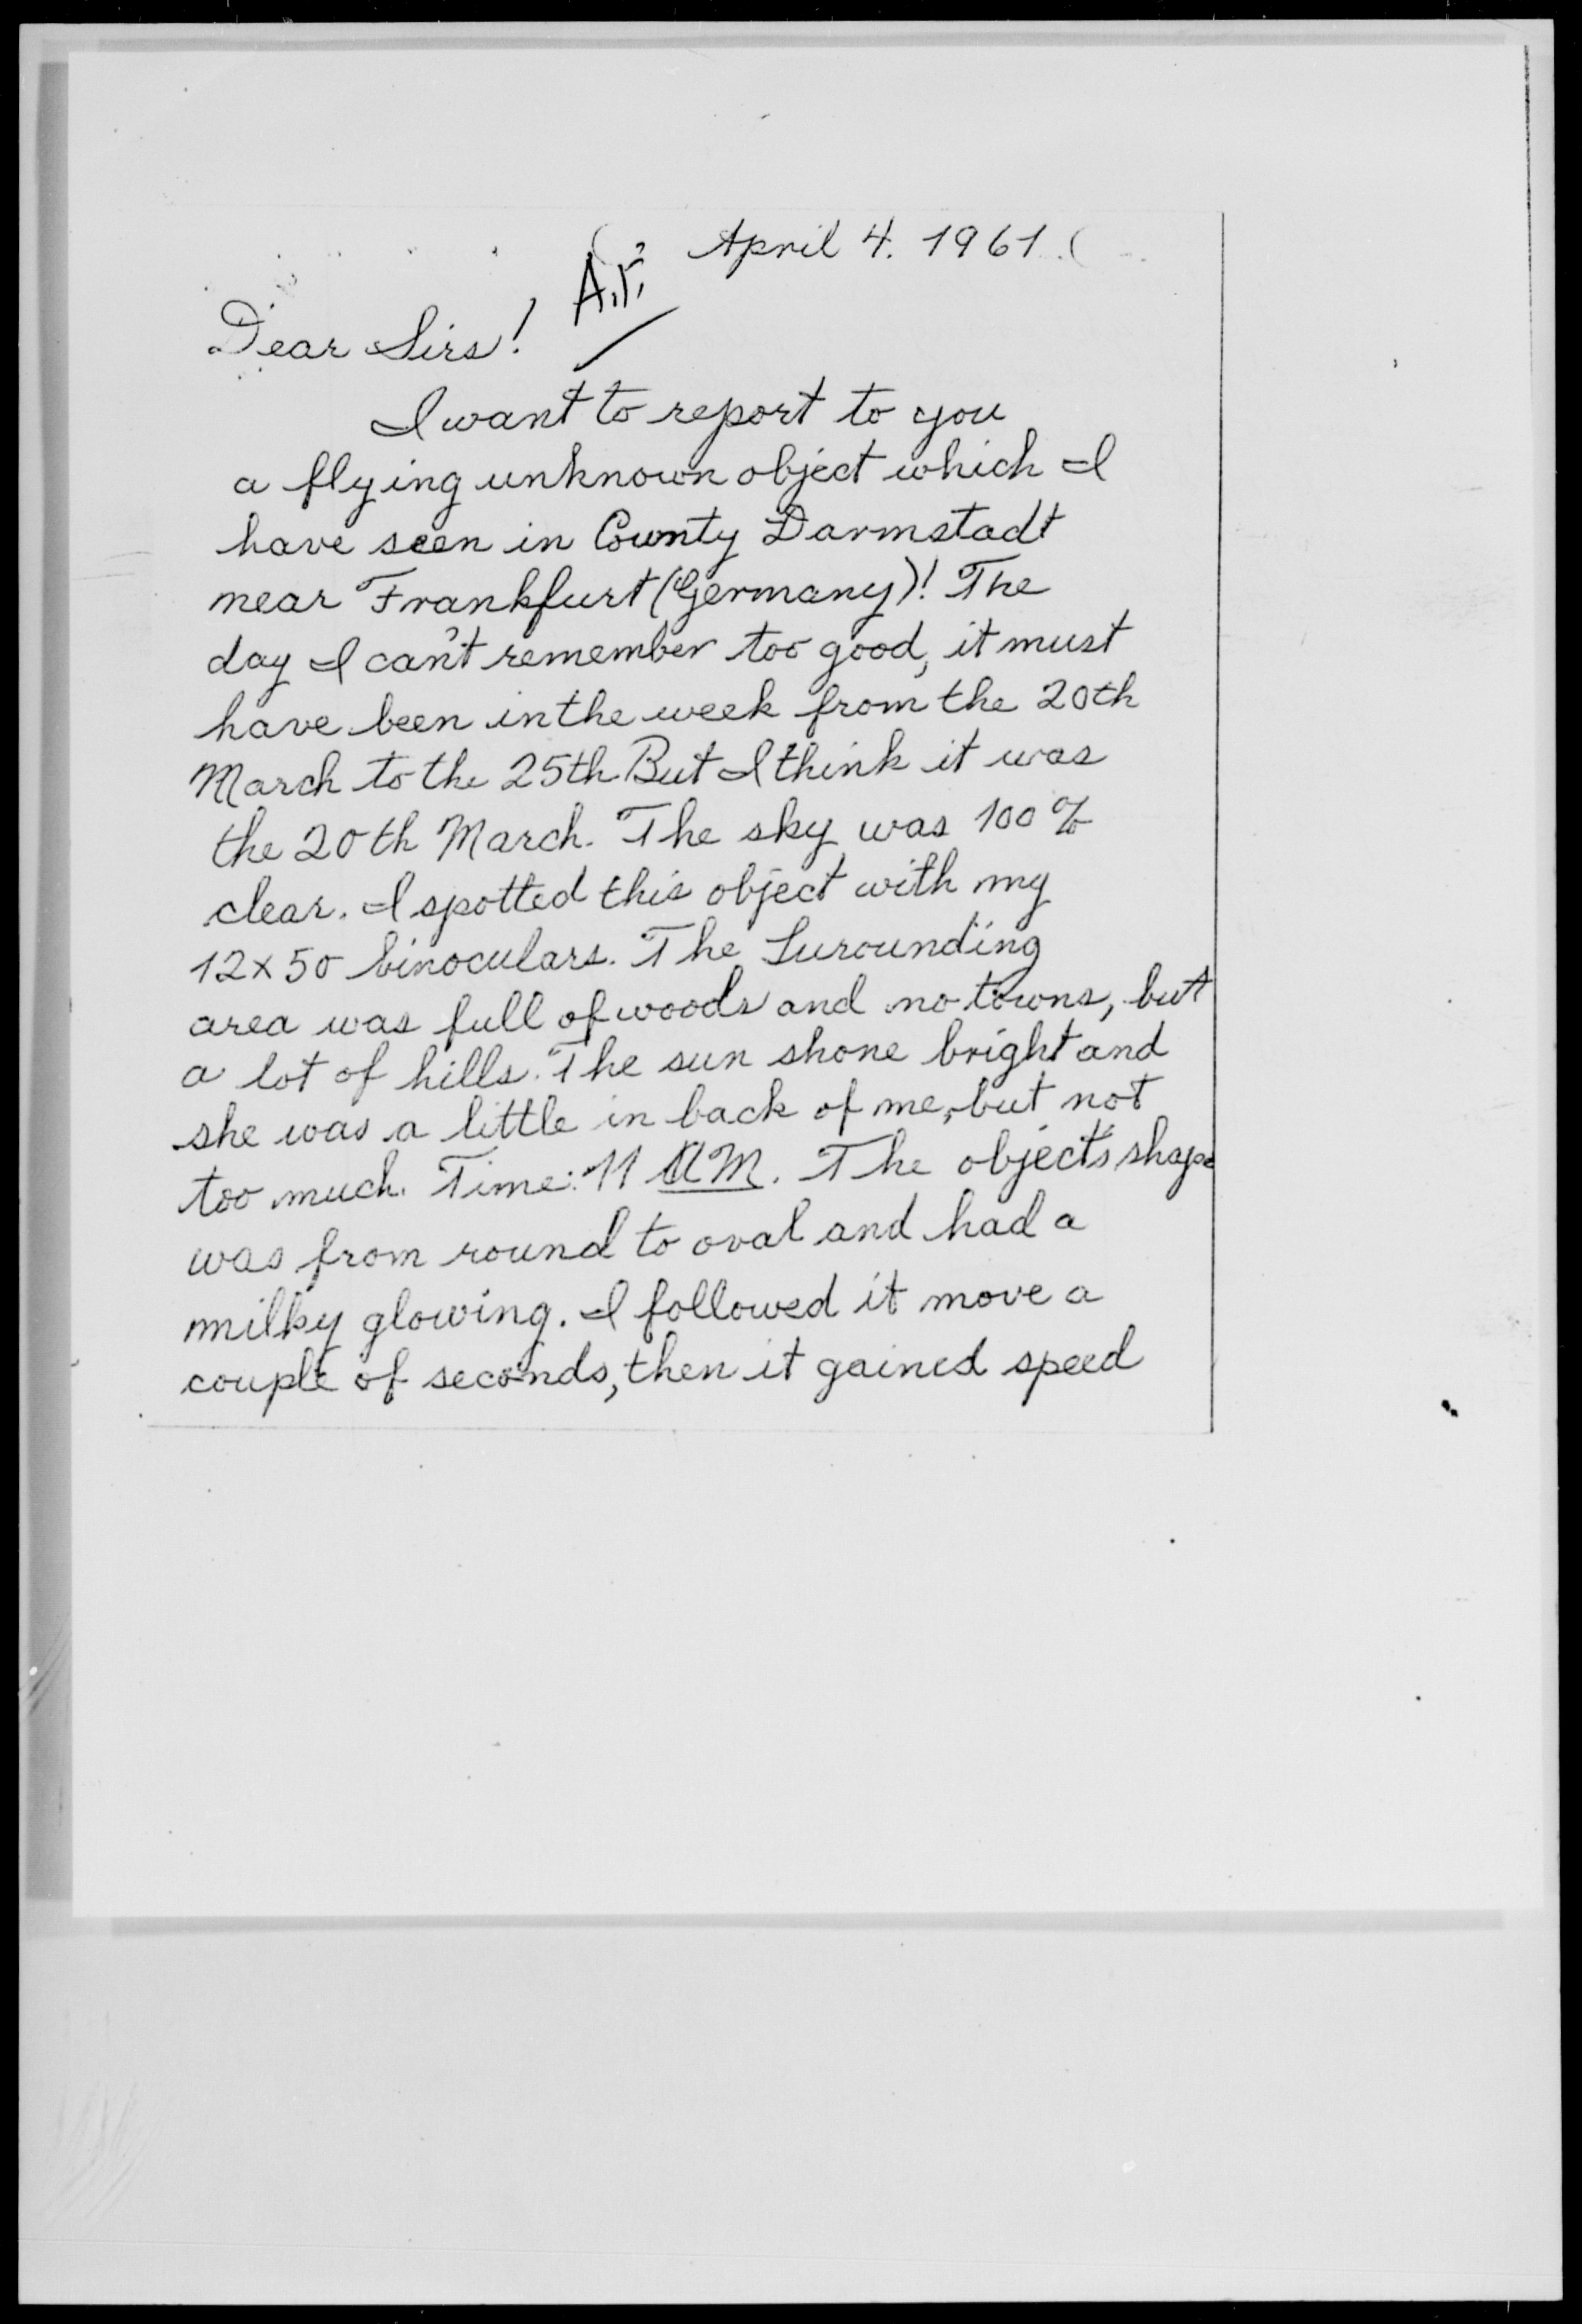 April 4. 1961.
Dear Sirs!
I want to report to you
a flying unknown object which I
have seen in County Darmstadt
near Frankfurt (Germany)! The
day I can't remember too good, it must
have been in the week from the 20th
March to the 25th But I think it was
the 20th March. The sky was 100%
clear. I spotted this object with my
12x50 binoculars. The Surounding
area was full of woods and no towns, but
a lot of hills. The sun shone bright and
she was a little in back of me, but not
too much. Time: 11 AM. The object's shape
was from round to oval and had a
milky glowing. I followed it move a
couple of seconds, then it gained speed